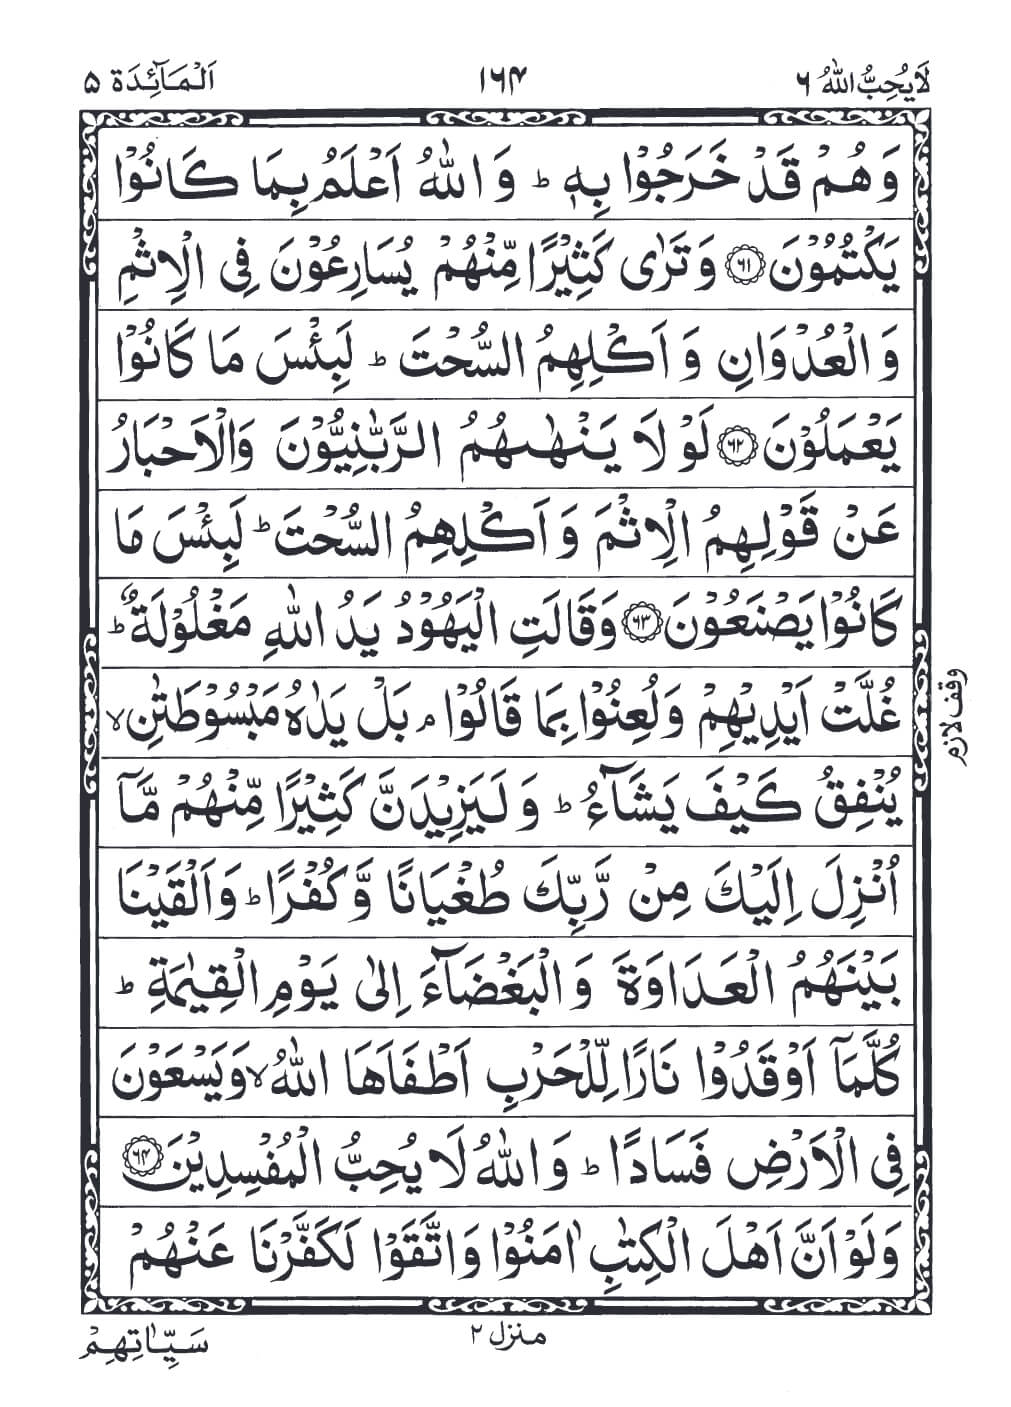 لَا يُحِبُّ اللّٰهُ ٦ ١٦۴ اَلْمَآئِدَة ۵
وَ هُمْ قَدْ خَرَجُوْا بِهٖ ؕ وَ اللّٰهُ اَعْلَمُ بِمَا كَانُوْا
يَكْتُمُوْنَ ۶۱ وَ تَرٰى كَثِيْرًا مِّنْهُمْ يُسَارِعُوْنَ فِى الْاِثْمِ
وَ الْعُدْوَانِ وَ اَكْلِهِمُ السُّحْتَ ؕ لَبِئْسَ مَا كَانُوْا
يَعْمَلُوْنَ ۶۲ لَوْ لَا يَنْهٰىهُمُ الرَّبّٰنِيُّوْنَ وَالْاَحْبَارُ
عَنْ قَوْلِهِمُ الْاِثْمَ وَ اَكْلِهِمُ السُّحْتَ ؕ لَبِئْسَ مَا
كَانُوْا يَصْنَعُوْنَ ۶۳ وَقَالَتِ الْيَهُوْدُ يَدُ اللّٰهِ مَغْلُوْلَةٌ ؕ
غُلَّتْ اَيْدِيْهِمْ وَ لُعِنُوْا بِمَا قَالُوْا ۘ بَلْ يَدٰهُ مَبْسُوْطَتٰنِ ۙ
وقف لازم
يُنْفِقُ كَيْفَ يَشَآءُ ؕ وَ لَيَزِيْدَنَّ كَثِيْرًا مِّنْهُمْ مَّاۤ
اُنْزِلَ اِلَيْكَ مِنْ رَّبِّكَ طُغْيَانًا وَّ كُفْرًا ؕ وَ اَلْقَيْنَا
بَيْنَهُمُ الْعَدَاوَةَ وَ الْبَغْضَآءَ اِلٰى يَوْمِ الْقِيٰمَةِ ؕ
كُلَّمَاۤ اَوْقَدُوْا نَارًا لِّلْحَرْبِ اَطْفَاَهَا اللّٰهُ ۙ وَ يَسْعَوْنَ
فِى الْاَرْضِ فَسَادًا ؕ وَ اللّٰهُ لَا يُحِبُّ الْمُفْسِدِيْنَ ۶۴
وَ لَوْ اَنَّ اَهْلَ الْكِتٰبِ اٰمَنُوْا وَ اتَّقَوْا لَكَفَّرْنَا عَنْهُمْ
منزل ٢
سَيِّاٰتِهِمْ